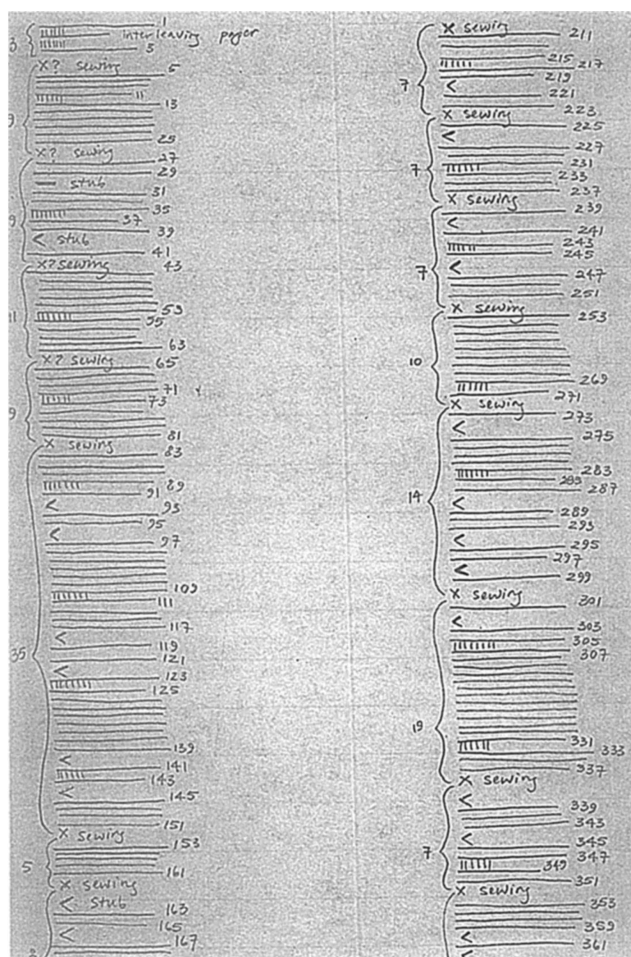 1
3
interleaving paper
5
X? sewing 5
11
13
25
X? sewing 27
29
stub
31
35
37
39
< stub
41
X? sewing 43
59
63
X? sewing 65
71
73
81
X sewing
83
89
91
< 93
95
< 97
109
111
117
<
119
121
<
123
125
139
<
141
143
<
145
151
X sewing
35
153
5
161
X sewing
< stub
163
165
<
167
X sewing 211
215
217
219
7
<
221
223
X sewing 225
<
227
231
7
233
237
X sewing 239
<
241
243
245
7
<
247
251
X sewing 253
10
269
271
X sewing 273
<
275
283
287
14
<
289
293
<
295
297
<
299
X sewing 301
<
303
305
307
19
331
333
337
X sewing
<
339
343
<
345
7
347
349
351
X sewing 353
359
<
361
<